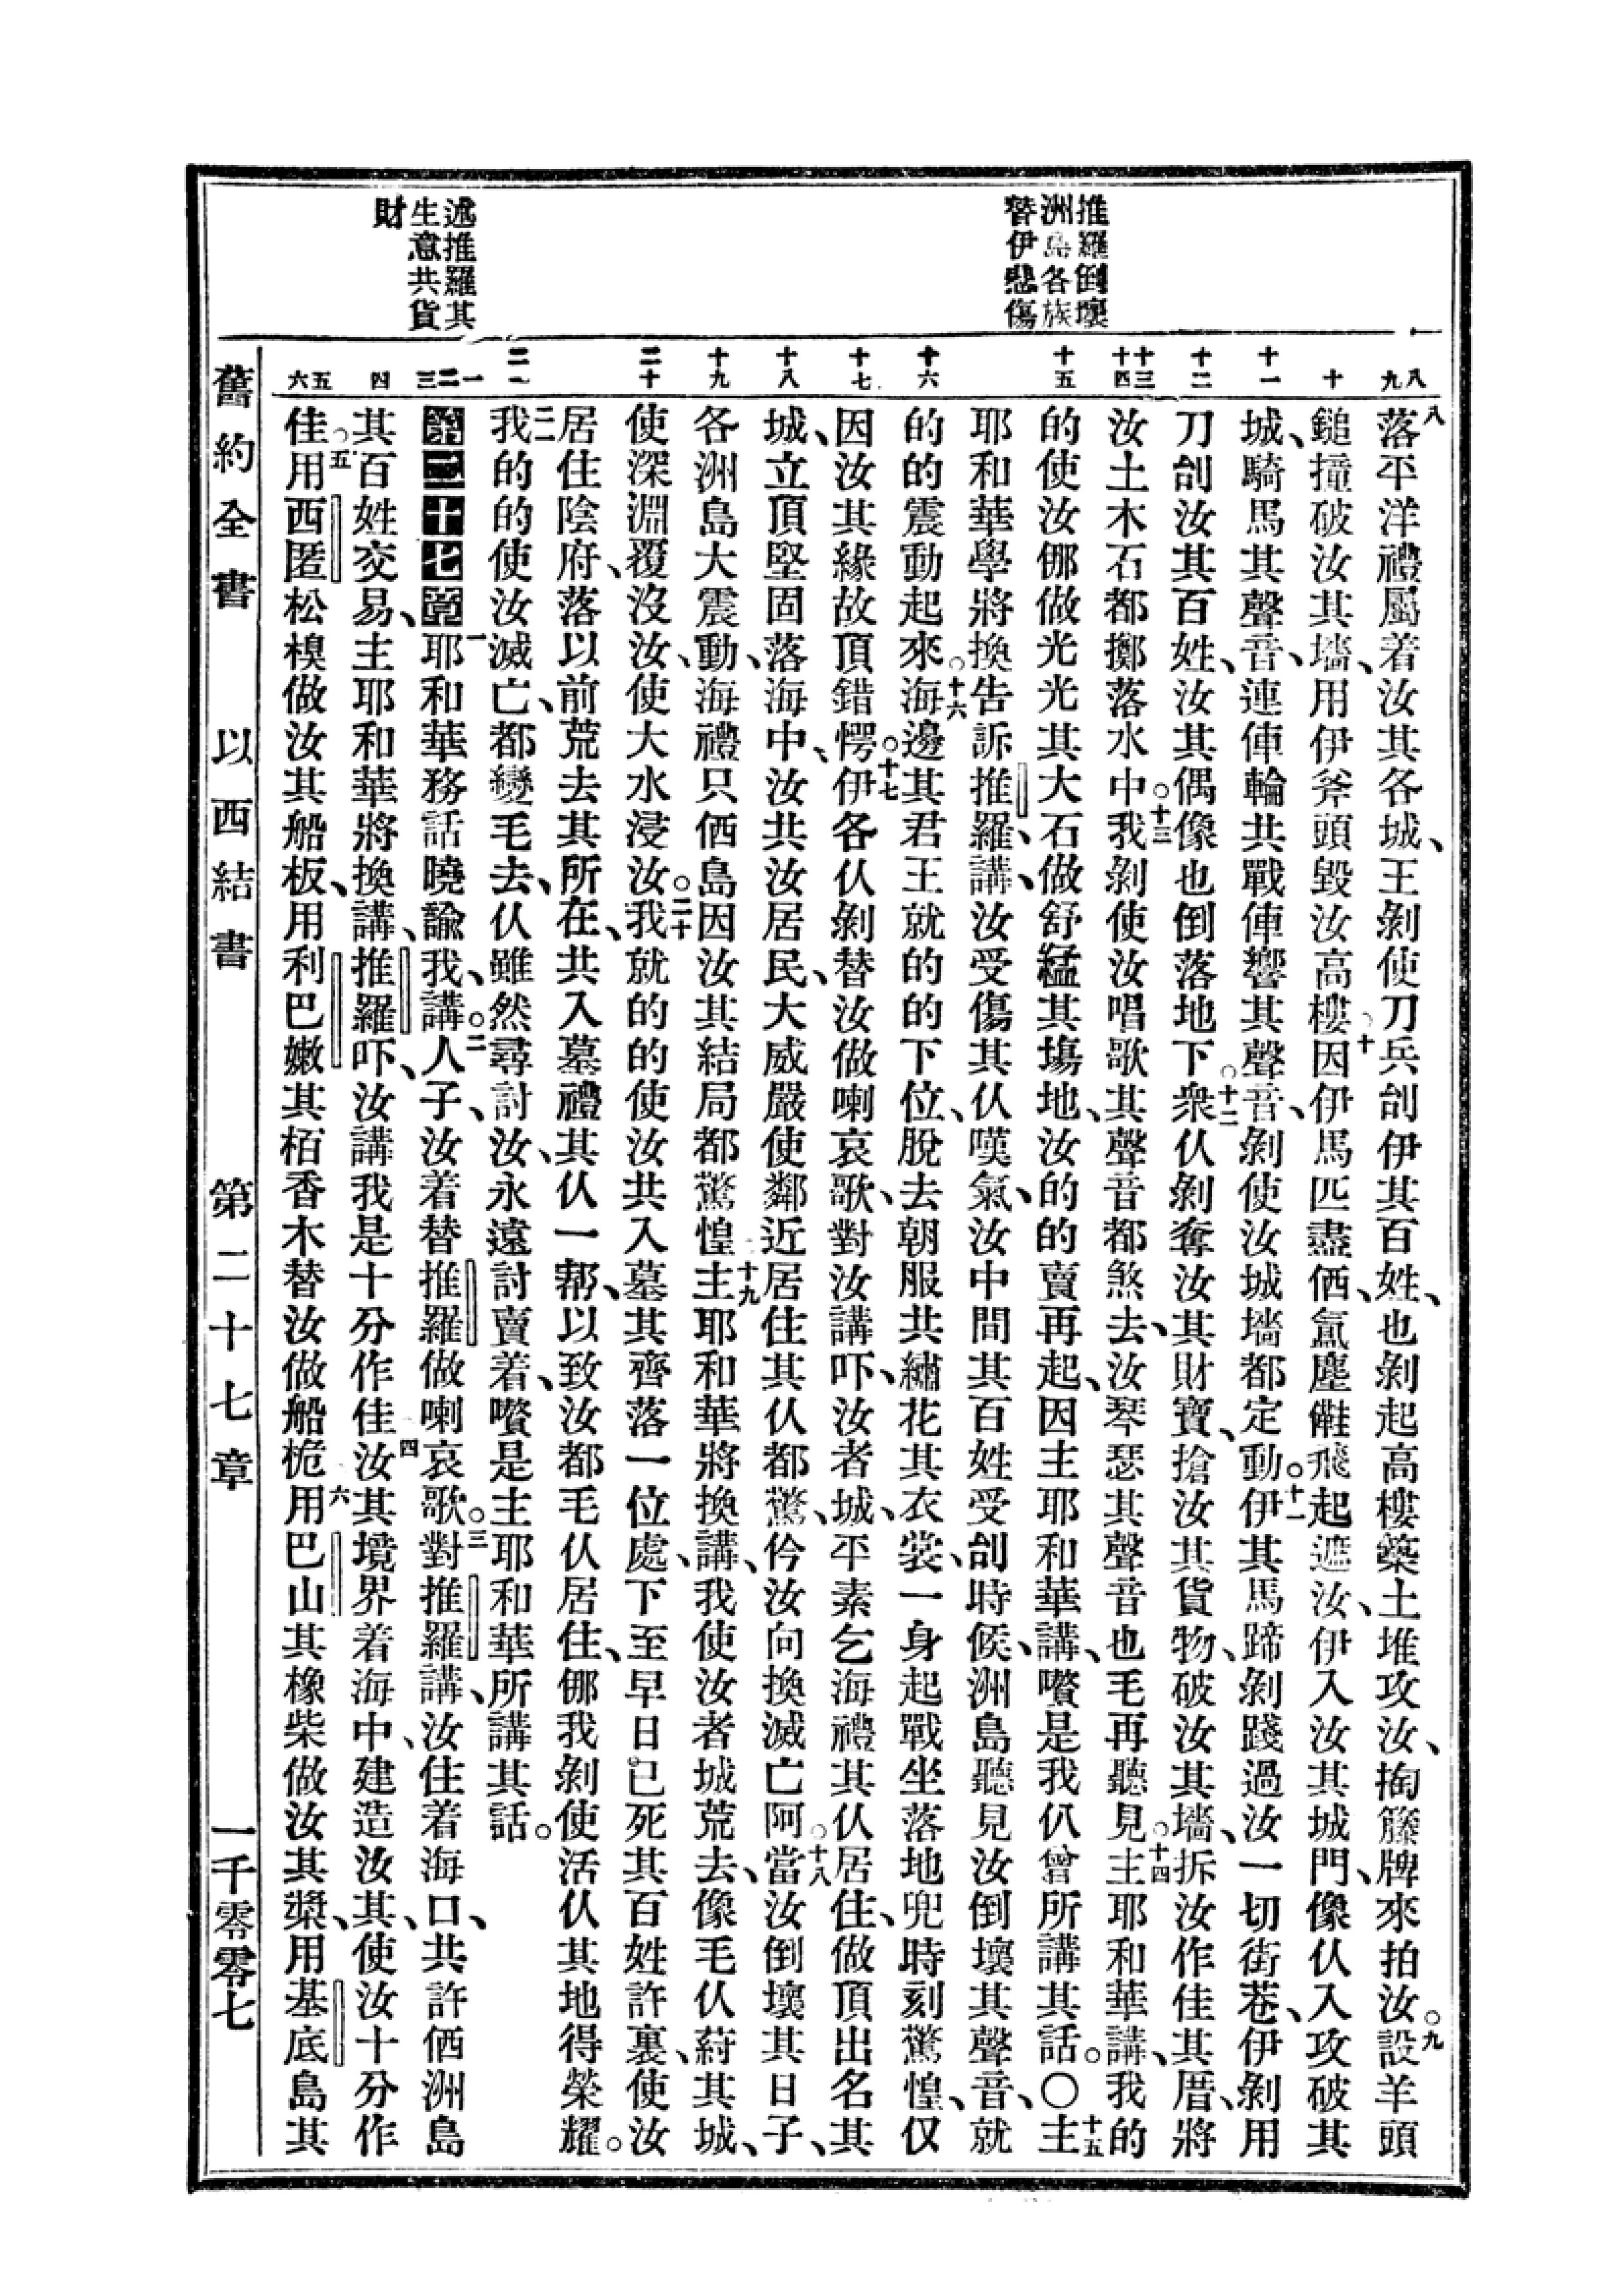 推羅倒壞
洲島各族
替伊悲傷
述推羅其
生意共貨
財
八
九
十
十一
十二
十三
十四
十五
十六
十七
十八
十九
二十
二一
一
二
三
四
五
六
八落平洋禮屬着汝其各城、王剝使刀兵刣伊其百姓、也剝起高樓築土堆攻汝、掏籐牌來拍汝。九設羊頭
鎚撞破汝其墻、用伊斧頭毀汝高樓。十因伊馬匹盡伵、氳塵䧹飛起遮汝、伊入汝其城門、像仈入攻破其
城、騎馬其聲音、連俥輪共戰俥響其聲音、剝使汝城墻都定動。十一伊其馬蹄剝踐過汝一切街巷、伊剝用
刀刣汝其百姓、汝其偶像也倒落地下。十二衆仈剝奪汝其財寶、搶汝其貨物、破汝其墻、拆汝作佳其厝、將
汝土木石都擲落水中。十三我剝使汝唱歌其聲音都煞去、汝琴瑟其聲音也毛再聽見。十四主耶和華講、我的
的使汝㑚做光光其大石做舒綕其塲地、汝的的賣再起、因主耶和華講、嚽是我仈曾所講其話。〇十五主
耶和華學將換告訴推羅、講、汝受傷其仈嘆氣、汝中間其百姓受刣時候、洲島聽見汝倒壞其聲音、就
的的震動起來。十六海邊其君王就的的下位、脫去朝服共繡花其衣裳、一身起戰坐落地兜時刻驚惶、仅
因汝其緣故頂錯愕。十七伊各仈剝替汝做喇哀歌、對汝講吓、汝者城、平素乞海禮其仈居住、做頂出名其
城、立頂堅固落海中、汝共汝居民、大威嚴使鄰近居住其仈都驚、仱汝向換滅亡阿。十八當汝倒壞其日子、
各洲島大震動、海禮只伵島因汝其結局都驚惶。十九主耶和華將換講、我使汝者城荒去、像毛仈䓁其城、
使深淵覆沒汝、使大水浸汝。二十我就的的使汝共入墓其齊落一位處、下至早日已死其百姓許裏、使汝
居住陰府、落以前荒去其所在、共入墓禮其仈一幚、以致汝都毛仈居住、㑚我剝使活仈其地得榮耀。
二一我的的使汝滅亡、都變毛去、仈雖然尋討汝、永遠討賣着、嚽是主耶和華所講其話。
第二十七章一耶和華務話曉諭我、講。二人子、汝着替推羅做喇哀歌。三對推羅講、汝住着海口、共許伵洲島
其百姓交易、主耶和華將換講、推羅吓、汝講我是十分作佳。四汝其境界着海中、建造汝其、使汝十分作
佳。五用西匿松模做汝其船板、用利巴嫩其栢香木替汝做船桅。六用巴山其橡柴做汝其槳、用基底島其
舊約全書　以西結書　第二十七章　一千零零七